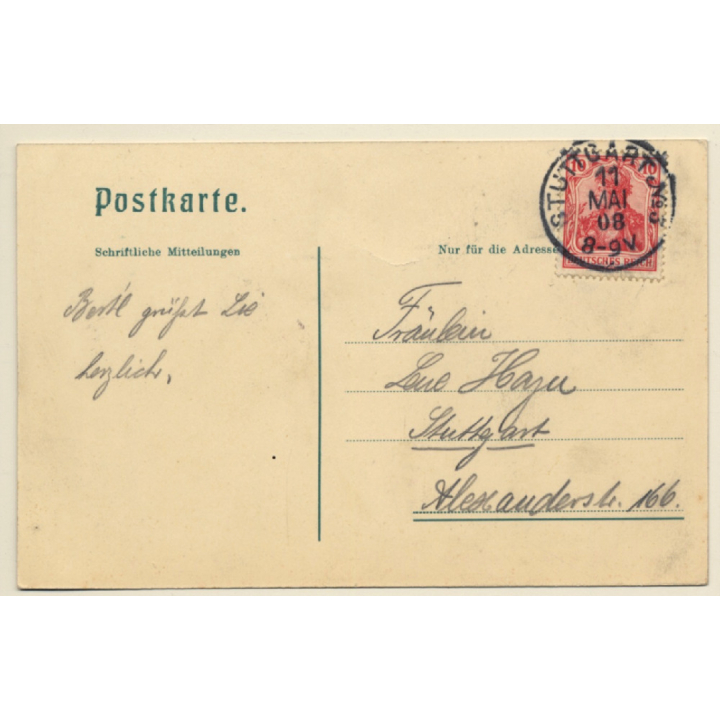 Postkarte.
Schriftliche Mitteilungen
Nur für die Adresse
STUTTGART No. 3
11
MAI
08
8-9V
10 10
DEUTSCHES REICH
Bertl grüßt Sie
herzlich,
Fräulein
Stuttgart
Alexanderstr. 166.